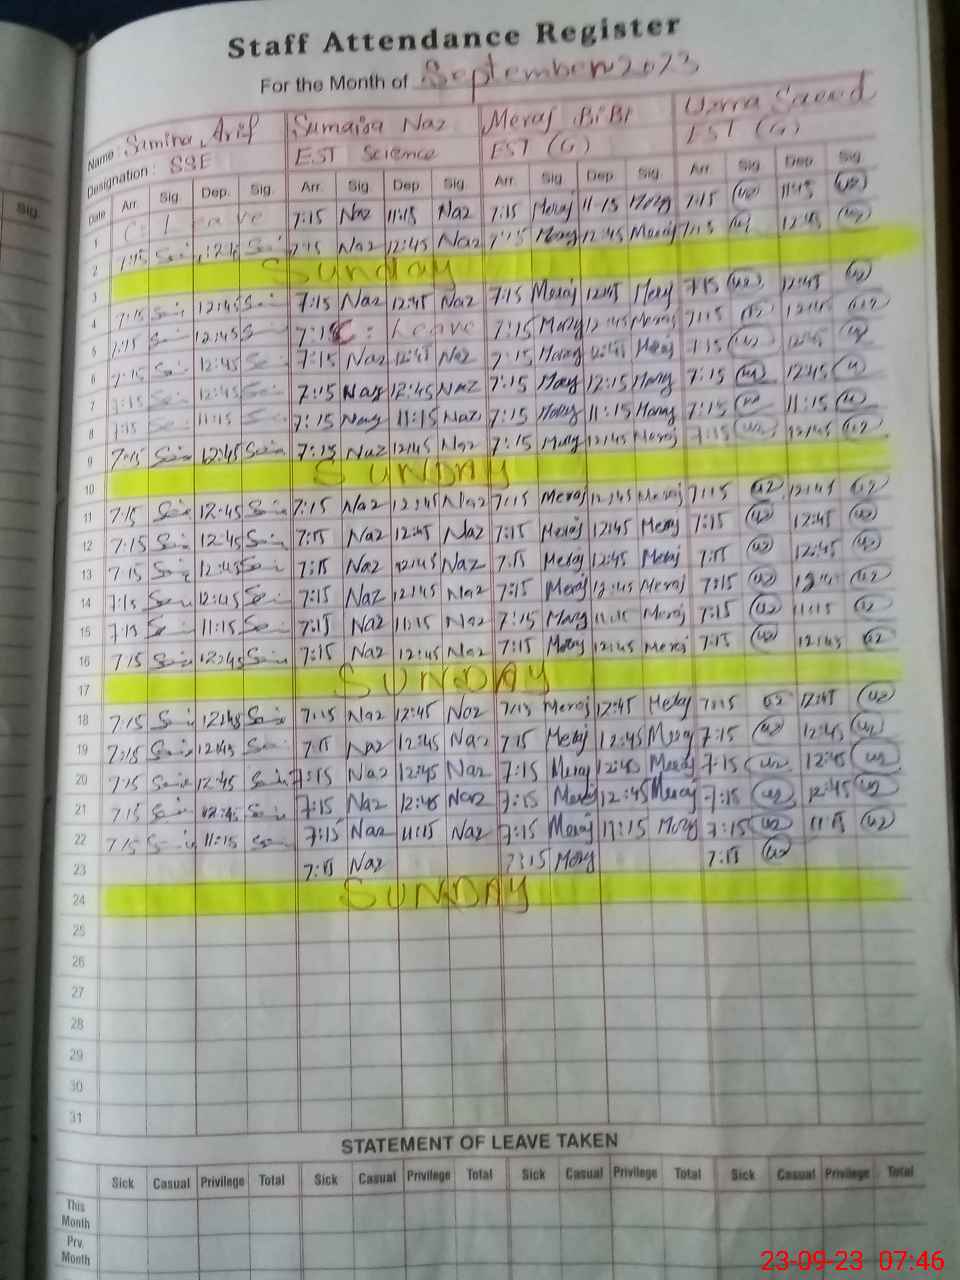 Staff Attendance Register
For the Month of September 2023
Name: Samina Arif Sumaira Naz Meraj BiBi Uzma Saeed
Designation: SSE EST Science EST (G) EST (G)
Date Arr. Sig Dep. Sig. Arr. Sig Dep Sig. Arr. Sig. Dep. Sig. Arr. Sig. Dep. Sig.
Sig.
1 C. Leave 7:15 Naz 11:15 Naz 7:15 Meraj 11:15 Meraj 7:15 uz 11:15 uz
2 7:15 12:45 7:15 Naz 12:45 Naz 7:15 Meraj 12:45 Meraj 7:15 uz 12:45 uz
3 Sunday
4 7:15 12:45 7:15 Naz 12:45 Naz 7:15 Meraj 12:45 Meraj 7:15 uz 12:45 uz
5 7:15 12:45 7:15 C: Leave 7:15 Meraj 12:45 Meraj 7:15 uz 12:45 uz
6 7:15 12:45 7:15 Naz 12:45 Naz 7:15 Meraj 12:45 Meraj 7:15 uz 12:45 uz
7 7:15 12:45 7:15 Naz 12:45 Naz 7:15 Meraj 12:15 Meraj 7:15 uz 12:45 u
8 7:15 11:15 7:15 Naz 11:15 Naz 7:15 Meraj 11:15 Meraj 7:15 uz 11:15 u
9 7:15 12:45 7:15 Naz 12:45 Naz 7:15 Meraj 12:45 Meraj 7:15 uz 12:45 uz
10 SUNDAY
11 7:15 12:45 7:15 Naz 12:45 Naz 7:15 Meraj 12:45 Meraj 7:15 uz 12:45 uz
12 7:15 12:45 7:15 Naz 12:45 Naz 7:15 Meraj 12:45 Meraj 7:15 uz 12:45 uz
13 7:15 12:45 7:15 Naz 12:45 Naz 7:15 Meraj 12:45 Meraj 7:15 uz 12:45 uz
14 7:15 12:45 7:15 Naz 12:45 Naz 7:15 Meraj 12:45 Meraj 7:15 uz uz
15 7:15 11:15 7:15 Naz 11:15 Naz 7:15 Meraj 11:15 Meraj 7:15 uz 11:15 uz
16 7:15 12:45 7:15 Naz 12:45 Naz 7:15 Meraj 12:45 Meraj 7:15 uz 12:45 uz
17 SUNDAY
18 7:15 12:45 7:15 Naz 12:45 Naz 7:15 Meraj 12:45 Meraj 7:15 uz 12:45 uz
19 7:15 12:45 7:15 Naz 12:45 Naz 7:15 Meraj 12:45 Meraj 7:15 uz 12:45 uz
20 7:15 12:45 7:15 Naz 12:45 Naz 7:15 Meraj 12:45 Meraj 7:15 uz 12:45 uz
21 7:15 12:45 7:15 Naz 12:45 Naz 7:15 Meraj 12:45 Meraj 7:15 uz 12:45 uz
22 7:15 11:15 7:15 Naz 11:15 Naz 7:15 Meraj 11:15 Meraj 7:15 uz 11:15 uz
23 7:15 Naz 7:15 Meraj 7:15 uz
24 SUNDAY
25
26
27
28
29
30
31
STATEMENT OF LEAVE TAKEN
Sick Casual Privilege Total Sick Casual Privilege Total Sick Casual Privilege Total Sick Casual Privilege Total
This
Month
Prv.
Month
23-09-23 07:46